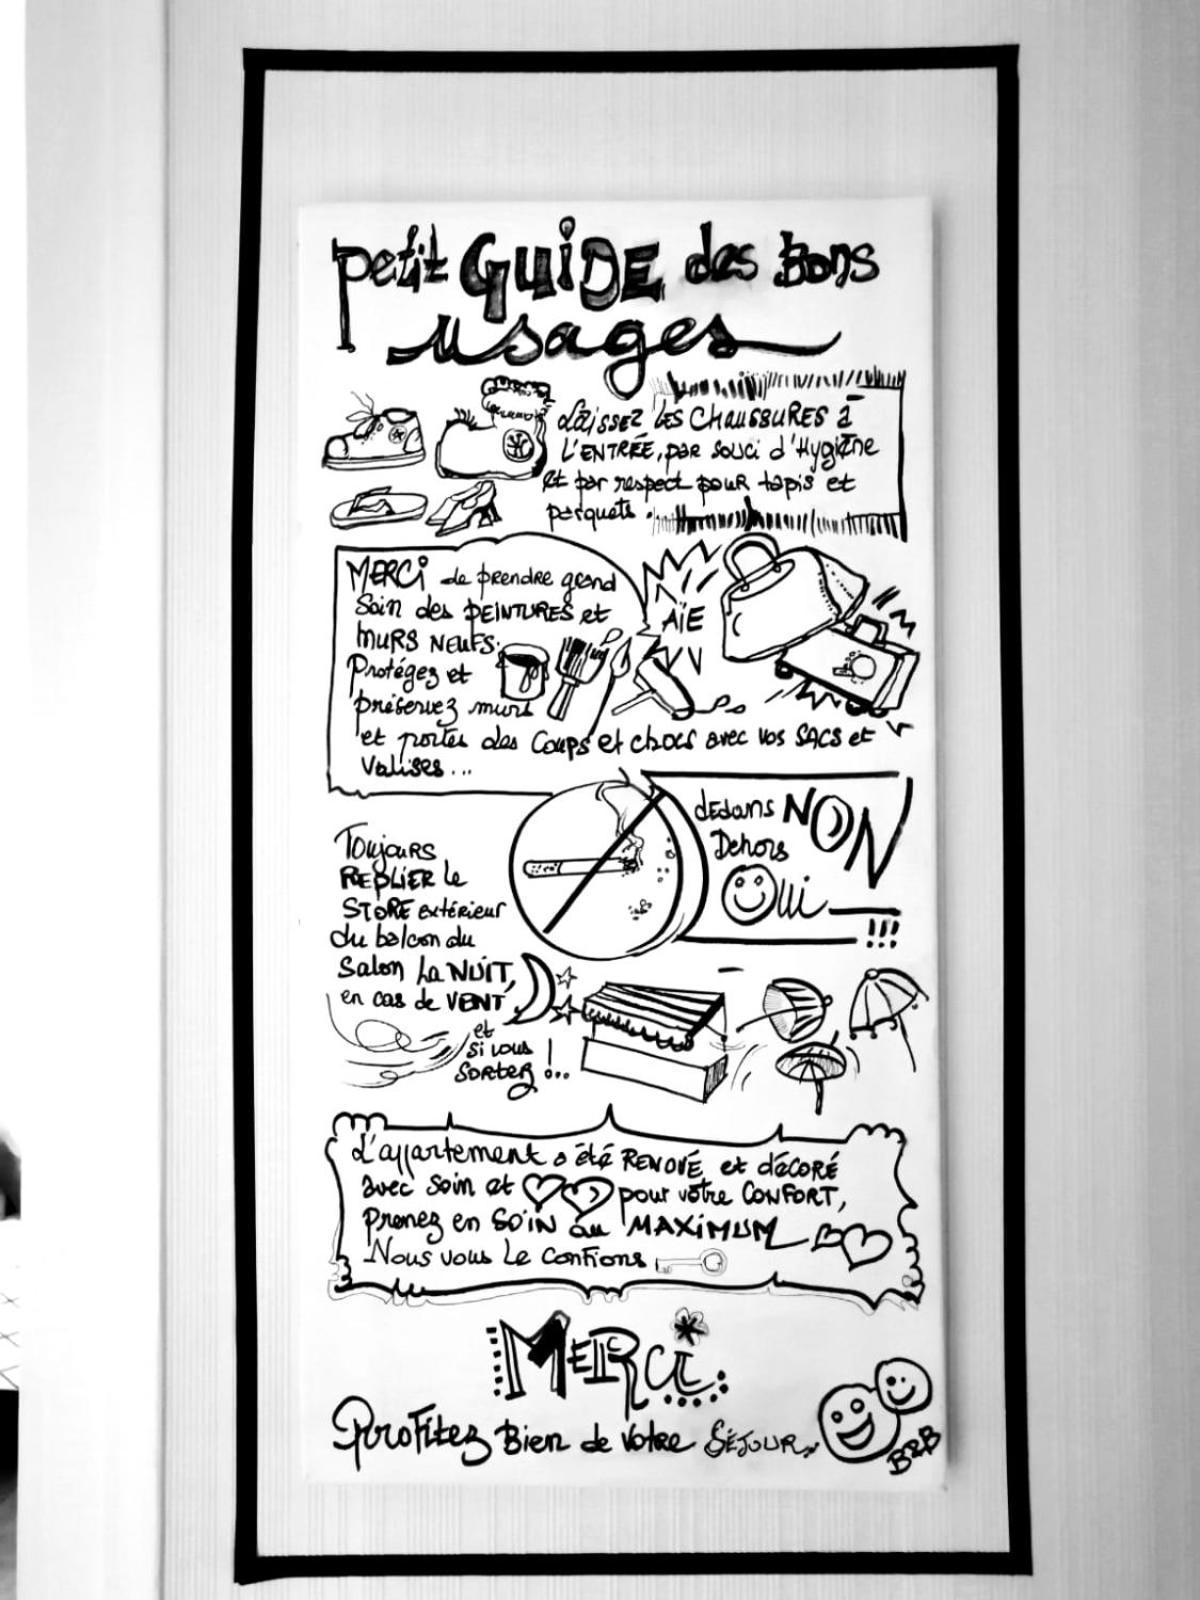 petit GUIDE des Bons
usages
Laissez les CHAUSSURES à
l'ENTRÉE, par souci d'Hygiène
et par respect pour tapis et
parquets.
MERCI de prendre grand
soin des PEINTURES et
MURS NEUFS.
Protégez et
préservez murs
AïE
et portes des Coups et chocs avec vos SACS et
Valises...
dedans NON
Dehors
Oui
!!!
Toujours
REPLIER le
STORE extérieur
du balcon du
Salon la NUIT,
en cas de VENT,
et
si vous
sortez !...
L'appartement a été RENOVÉ et décoré
avec soin et pour votre CONFORT,
Prenez en SOIN au MAXIMUM
Nous vous le confions
MERCI
Profitez Bien de votre SÉJOUR
B2B